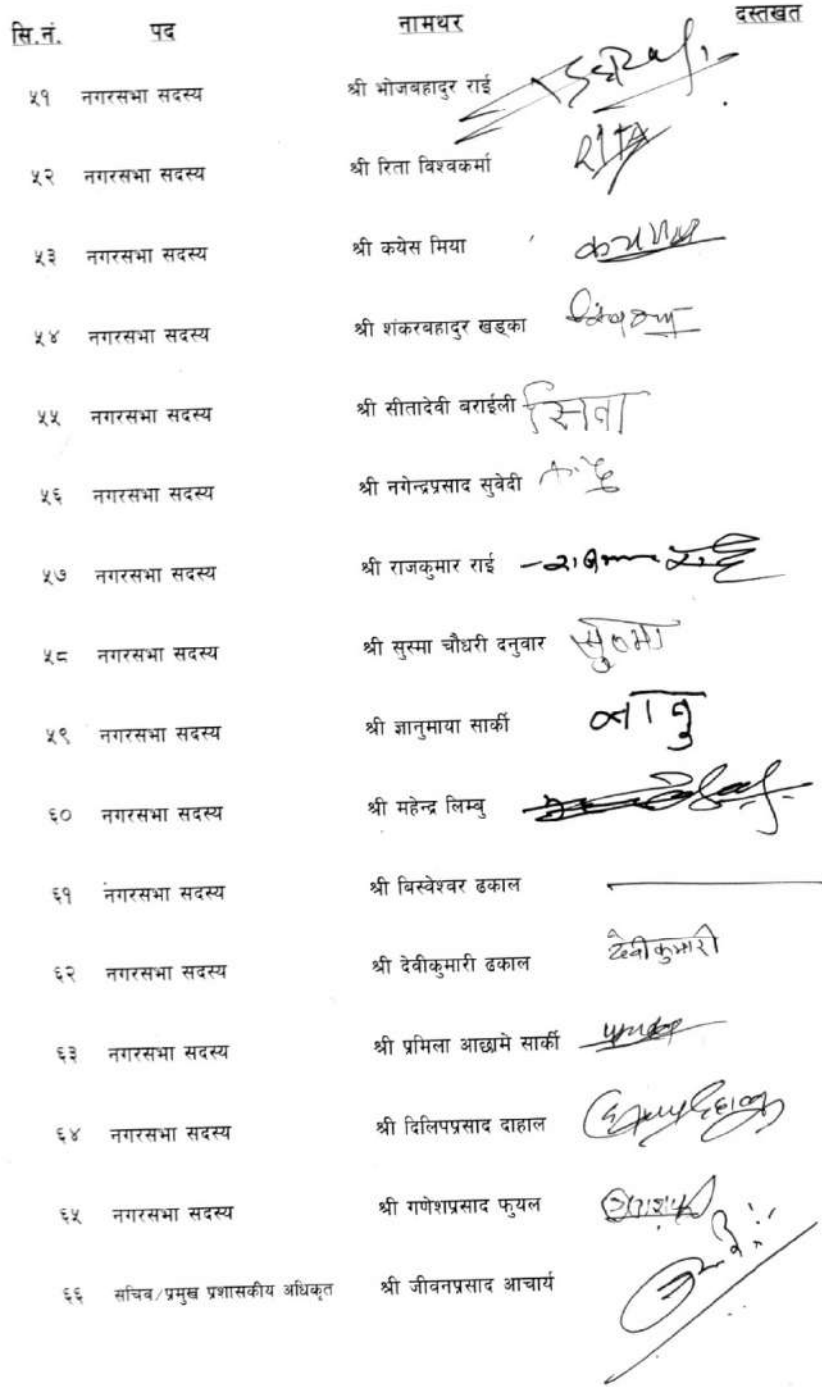 सि.नं. पद नामथर दस्तखत
५१ नगरसभा सदस्य श्री भोजबहादुर राई
५२ नगरसभा सदस्य श्री रिता विश्वकर्मा RITA
५३ नगरसभा सदस्य श्री कयेस मिया
५४ नगरसभा सदस्य श्री शंकरबहादुर खड्का
५५ नगरसभा सदस्य श्री सीतादेवी बराईली सिता
५६ नगरसभा सदस्य श्री नगेन्द्रप्रसाद सुवेदी
५७ नगरसभा सदस्य श्री राजकुमार राई
५८ नगरसभा सदस्य श्री सुस्मा चौधरी दनुवार
५९ नगरसभा सदस्य श्री ज्ञानुमाया सार्की
६० नगरसभा सदस्य श्री महेन्द्र लिम्बु
६१ नगरसभा सदस्य श्री बिस्वेश्वर ढकाल
६२ नगरसभा सदस्य श्री देवीकुमारी ढकाल देवीकुमारी
६३ नगरसभा सदस्य श्री प्रमिला आछामे सार्की
६४ नगरसभा सदस्य श्री दिलिपप्रसाद दाहाल
६५ नगरसभा सदस्य श्री गणेशप्रसाद फुयल
६६ सचिव/प्रमुख प्रशासकीय अधिकृत श्री जीवनप्रसाद आचार्य